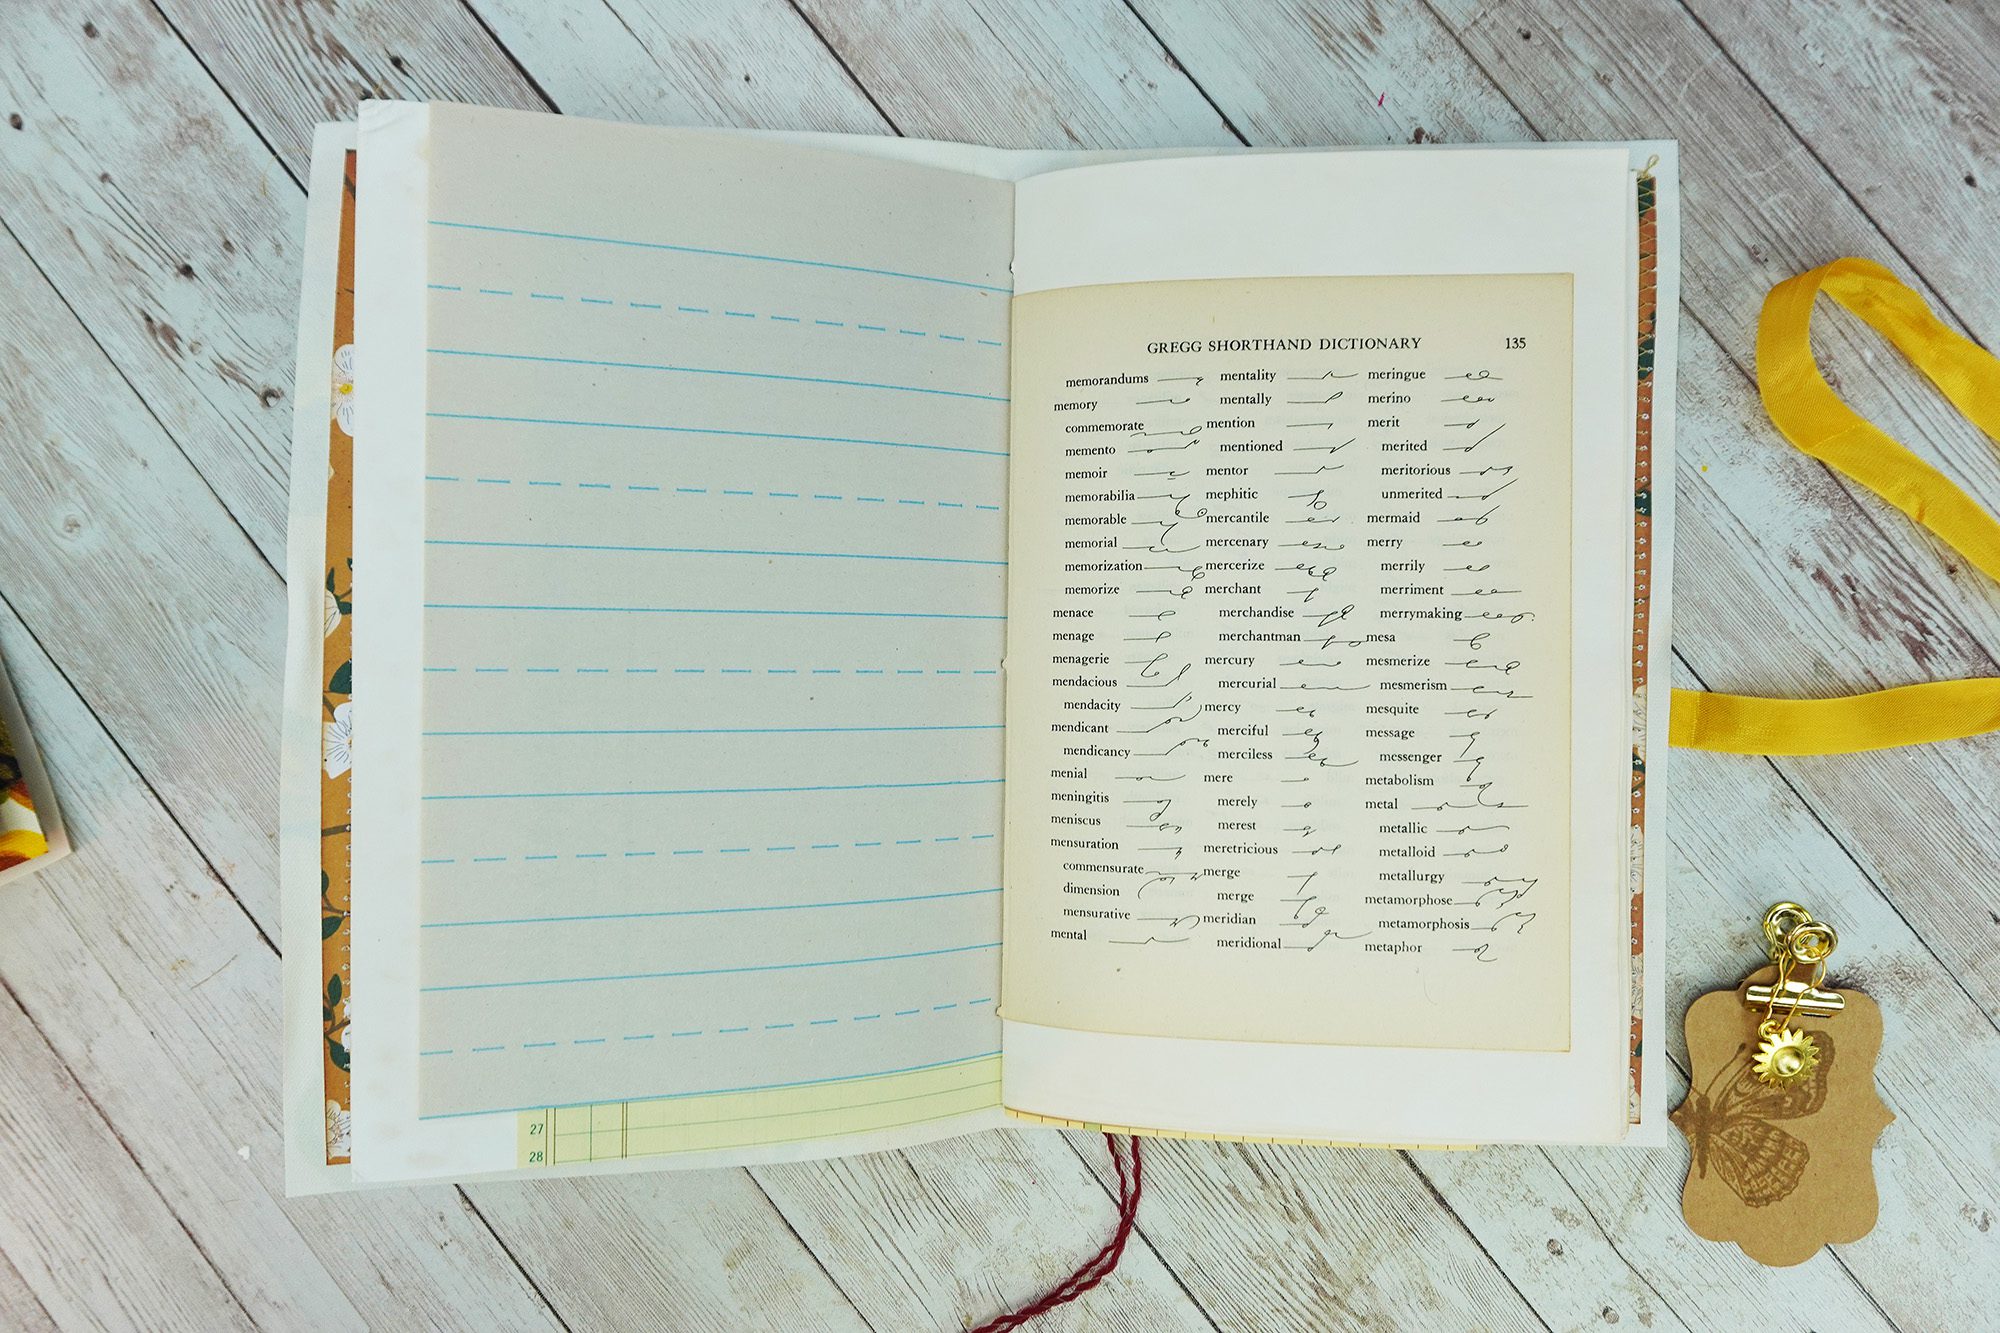 27
28
GREGG SHORTHAND DICTIONARY 135
memorandums
memory
commemorate
memento
memoir
memorabilia
memorable
memorial
memorization
memorize
menace
menage
menagerie
mendacious
mendacity
mendicant
mendicancy
menial
meningitis
meniscus
mensuration
commensurate
dimension
mensurative
mental
mentality
mentally
mention
mentioned
mentor
mephitic
mercantile
mercenary
mercerize
merchant
merchandise
merchantman
mercury
mercurial
mercy
merciful
merciless
mere
merely
merest
meretricious
merge
merge
meridian
meridional
meringue
merino
merit
merited
meritorious
unmerited
mermaid
merry
merrily
merriment
merrymaking
mesa
mesmerize
mesmerism
mesquite
message
messenger
metabolism
metal
metallic
metalloid
metallurgy
metamorphose
metamorphosis
metaphor